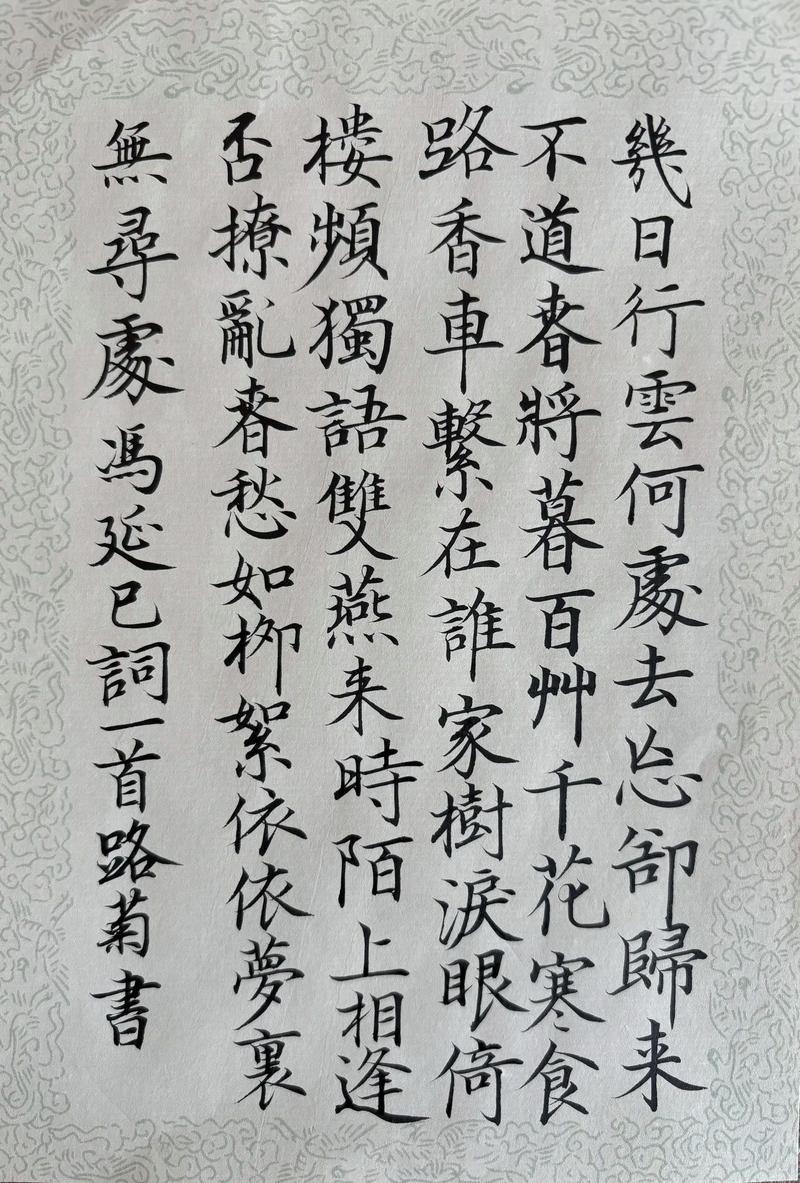 幾日行雲何處去忘卻歸来
不道春將暮百艸千花寒食
路香車繫在誰家樹淚眼倚
樓頻獨語雙燕来時陌上相逢
否撩亂春愁如柳絮依依夢裏
無尋處馮延巳詞一首路菊書